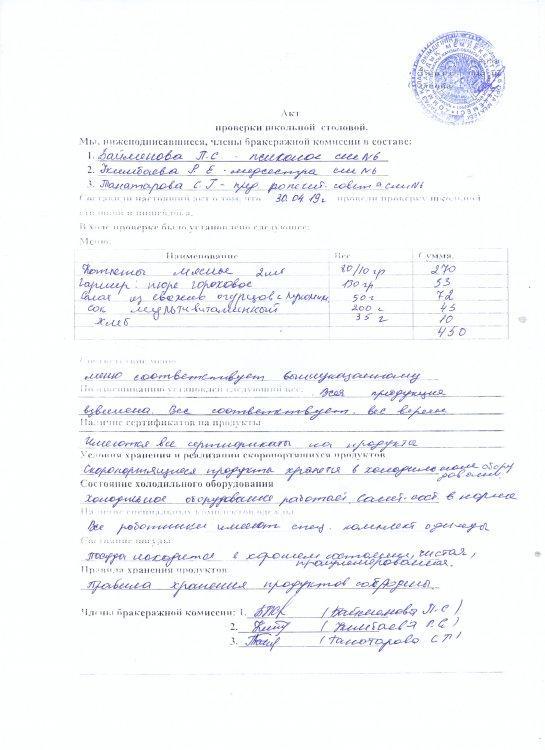 Акт
проверки школьной столовой.
Мы, нижеподписавшиеся, члены бракеражной комиссии в составе:
1. П.С - психолог сш №6
2. Р.Е - медсестра сш №6
3. С.Г. - пред. родит. совета сш №6
Составили настоящий акт о том, что 30.04.19г провели проверку школьной
столовой и пищеблока.
В ходе проверке было установлено следующее:
Меню:
Наименование Вес Сумма
Котлеты мясные 80/10 гр 270
Гарнир: пюре гороховое 150 гр 53
Салат из свежего огурца с 50 г 72
сок мультивитаминный 200 г 45
Хлеб 35 г 10
450
Соответствие меню
меню соответствует вышеуказанному
По взвешиванию установлен следующий вес: Вся продукция
взвешена. Вес соответствует. вес верен
Наличие сертификатов на продукты
Имеются все сертификаты на продукта
Условия хранения и реализации скоропортящихся продуктов
Скоропортящиеся продукта хранятся в
Состояние холодильного оборудования
холодильное оборудование работает. в норме
Наличие специальных комплектов одежды
Все работники имеют спец. комплект одежды
Состояние посуды
посуда находится в хорошем состоянии, чистая,
Правила хранения продуктов
Правила хранения продуктов соблюдены.
Члены бракеражной комиссии: 1.
2.
3.